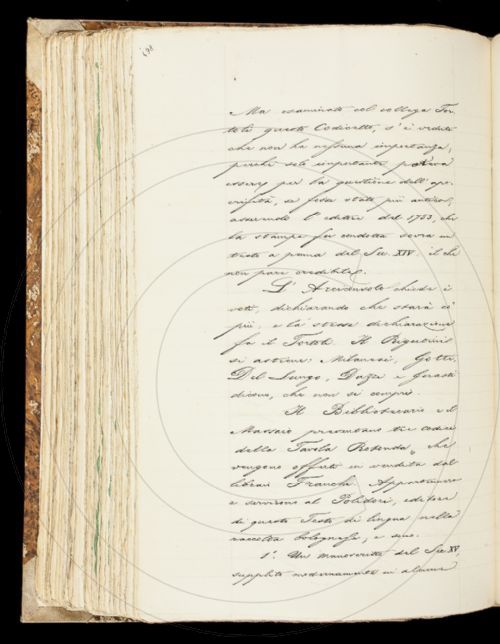 198
Ma esaminato col collega Tor-
toli questo Codicetto, s'è veduto
che non ha nessuna importanza,
perchè solo importante poteva
essere per la questione dell'apo-
crifità, se fosse stato più antico,
asserendo l'editore del 1753, che
la stampa fu condotta sovra un
testo a penna del Sec. XIV. il che
non pare credibile.
L'Arciconsolo chiede i
voti, dichiarando che starà ai
più, e la stessa dichiarazione
fa il Tortoli. Il Rigutini
si astiene: Milanesi, Gotti,
Del Lungo, Dazzi e Guasti
dicono, che non si compri.
Il Bibliotecario e il
Massaio presentano tre codici
della Tavola Rotonda, che
vengono offerti in vendita dal
libraio Franchi. Appartennero
e servirono al Polidori, editore
di questo Testo di lingua nella
raccolta bolognese, e sono:
1.° Un manoscritto del Sec. XV,
supplito modernamente in alcune